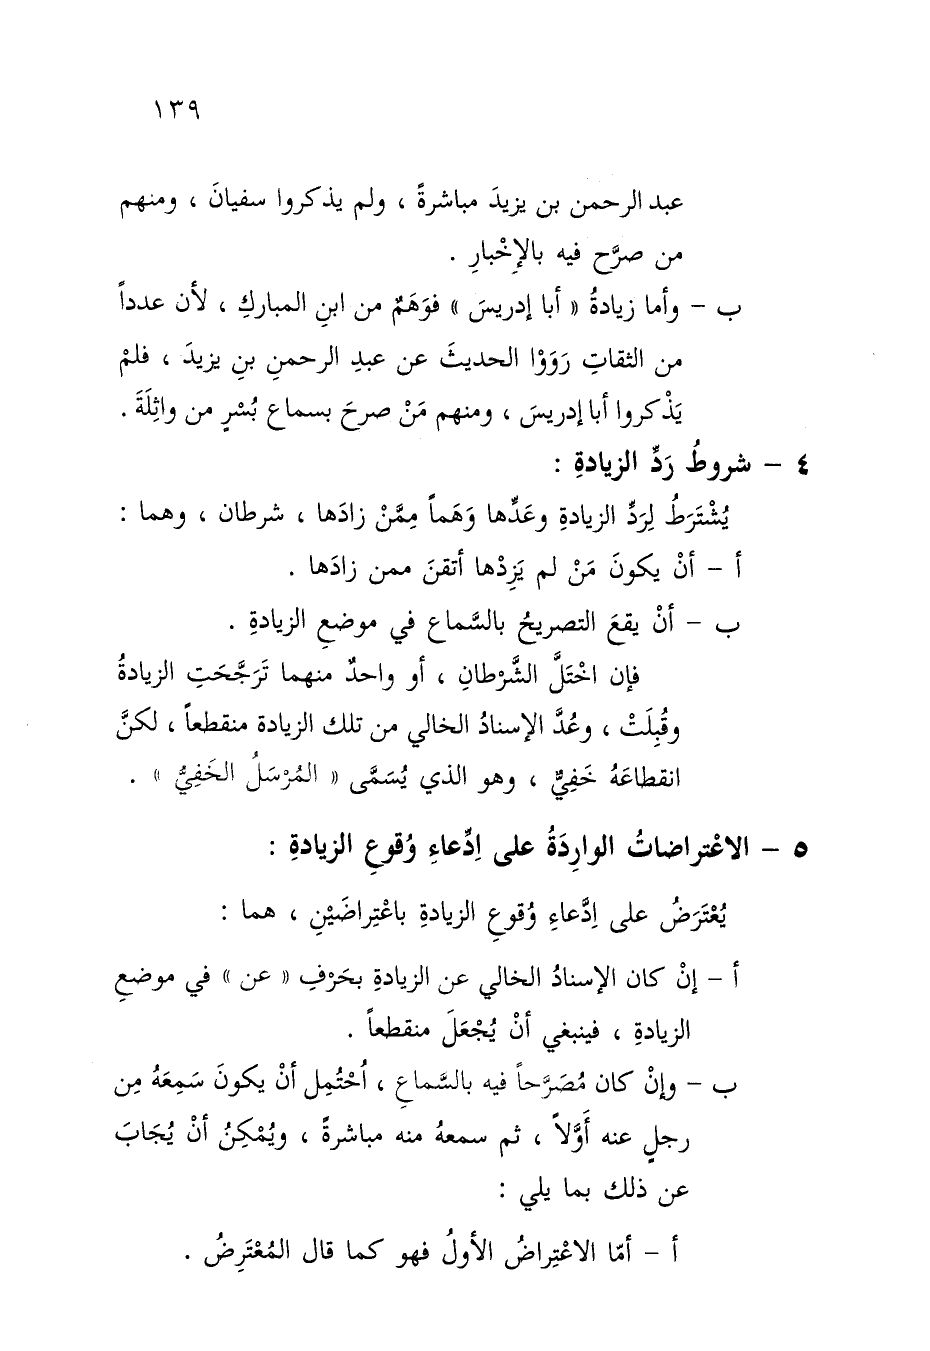 ١٣٩
عبد الرحمن بن يزيدَ مباشرةً ، ولم يذكروا سفيانَ ، ومنهم
من صرَّح فيه بالإِخْبارِ .
ب – وأما زيادةُ « أبا إدريسَ » فوَهَمٌ من ابنِ المباركِ ، لأن عدداً
من الثقاتِ رَوَوْا الحديثَ عن عبدِ الرحمنِ بنِ يزيدَ ، فلمْ
يَذْكروا أبا إدريسَ ، ومنهم مَنْ صرحَ بسماعِ بُسْرٍ من واثِلَةَ .
٤ – شروطُ رَدِّ الزيادةِ :
يُشْتَرَطُ لِرَدِّ الزيادةِ وعَدِّها وَهَماً مِمَّنْ زادَها ، شرطان ، وهما :
أ – أنْ يكونَ مَنْ لم يَزِدْها أتقنَ ممن زادَها .
ب – أنْ يقعَ التصريحُ بالسَّماعِ في موضعِ الزيادةِ .
فإن اخْتَلَّ الشَّرْطانِ ، أو واحدٌ منهما تَرَجَّحَتِ الزيادةُ
وقُبِلَتْ ، وعُدَّ الإسنادُ الخالي من تلك الزيادة منقطعاً ، لكنَّ
انقطاعَهُ خَفِيٌّ ، وهو الذي يُسَمَّى « المُرْسَلُ الخَفِيُّ » .
٥ – الاعْتراضاتُ الوارِدَةُ على اِدِّعاءِ وُقوعِ الزيادةِ :
يُعْتَرَضُ على اِدَّعاءِ وُقوعِ الزيادةِ باعْتِراضَيْنِ ، هما :
أ – إنْ كان الإسنادُ الخالي عن الزيادةِ بحَرْفِ « عن » في موضعِ
الزيادةِ ، فينبغي أنْ يُجْعَلَ منقطعاً .
ب – وإنْ كان مُصَرَّحاً فيه بالسَّماعِ ، اُحْتُمِل أنْ يكونَ سَمِعَهُ مِن
رجلٍ عنه أَوَّلاً ، ثم سمعهُ منه مباشرةً ، ويُمْكِنُ أنْ يُجَابَ
عن ذلك بما يلي :
أ – أمّا الاعْتِراضُ الأولُ فهو كما قال المُعْتَرِضُ .